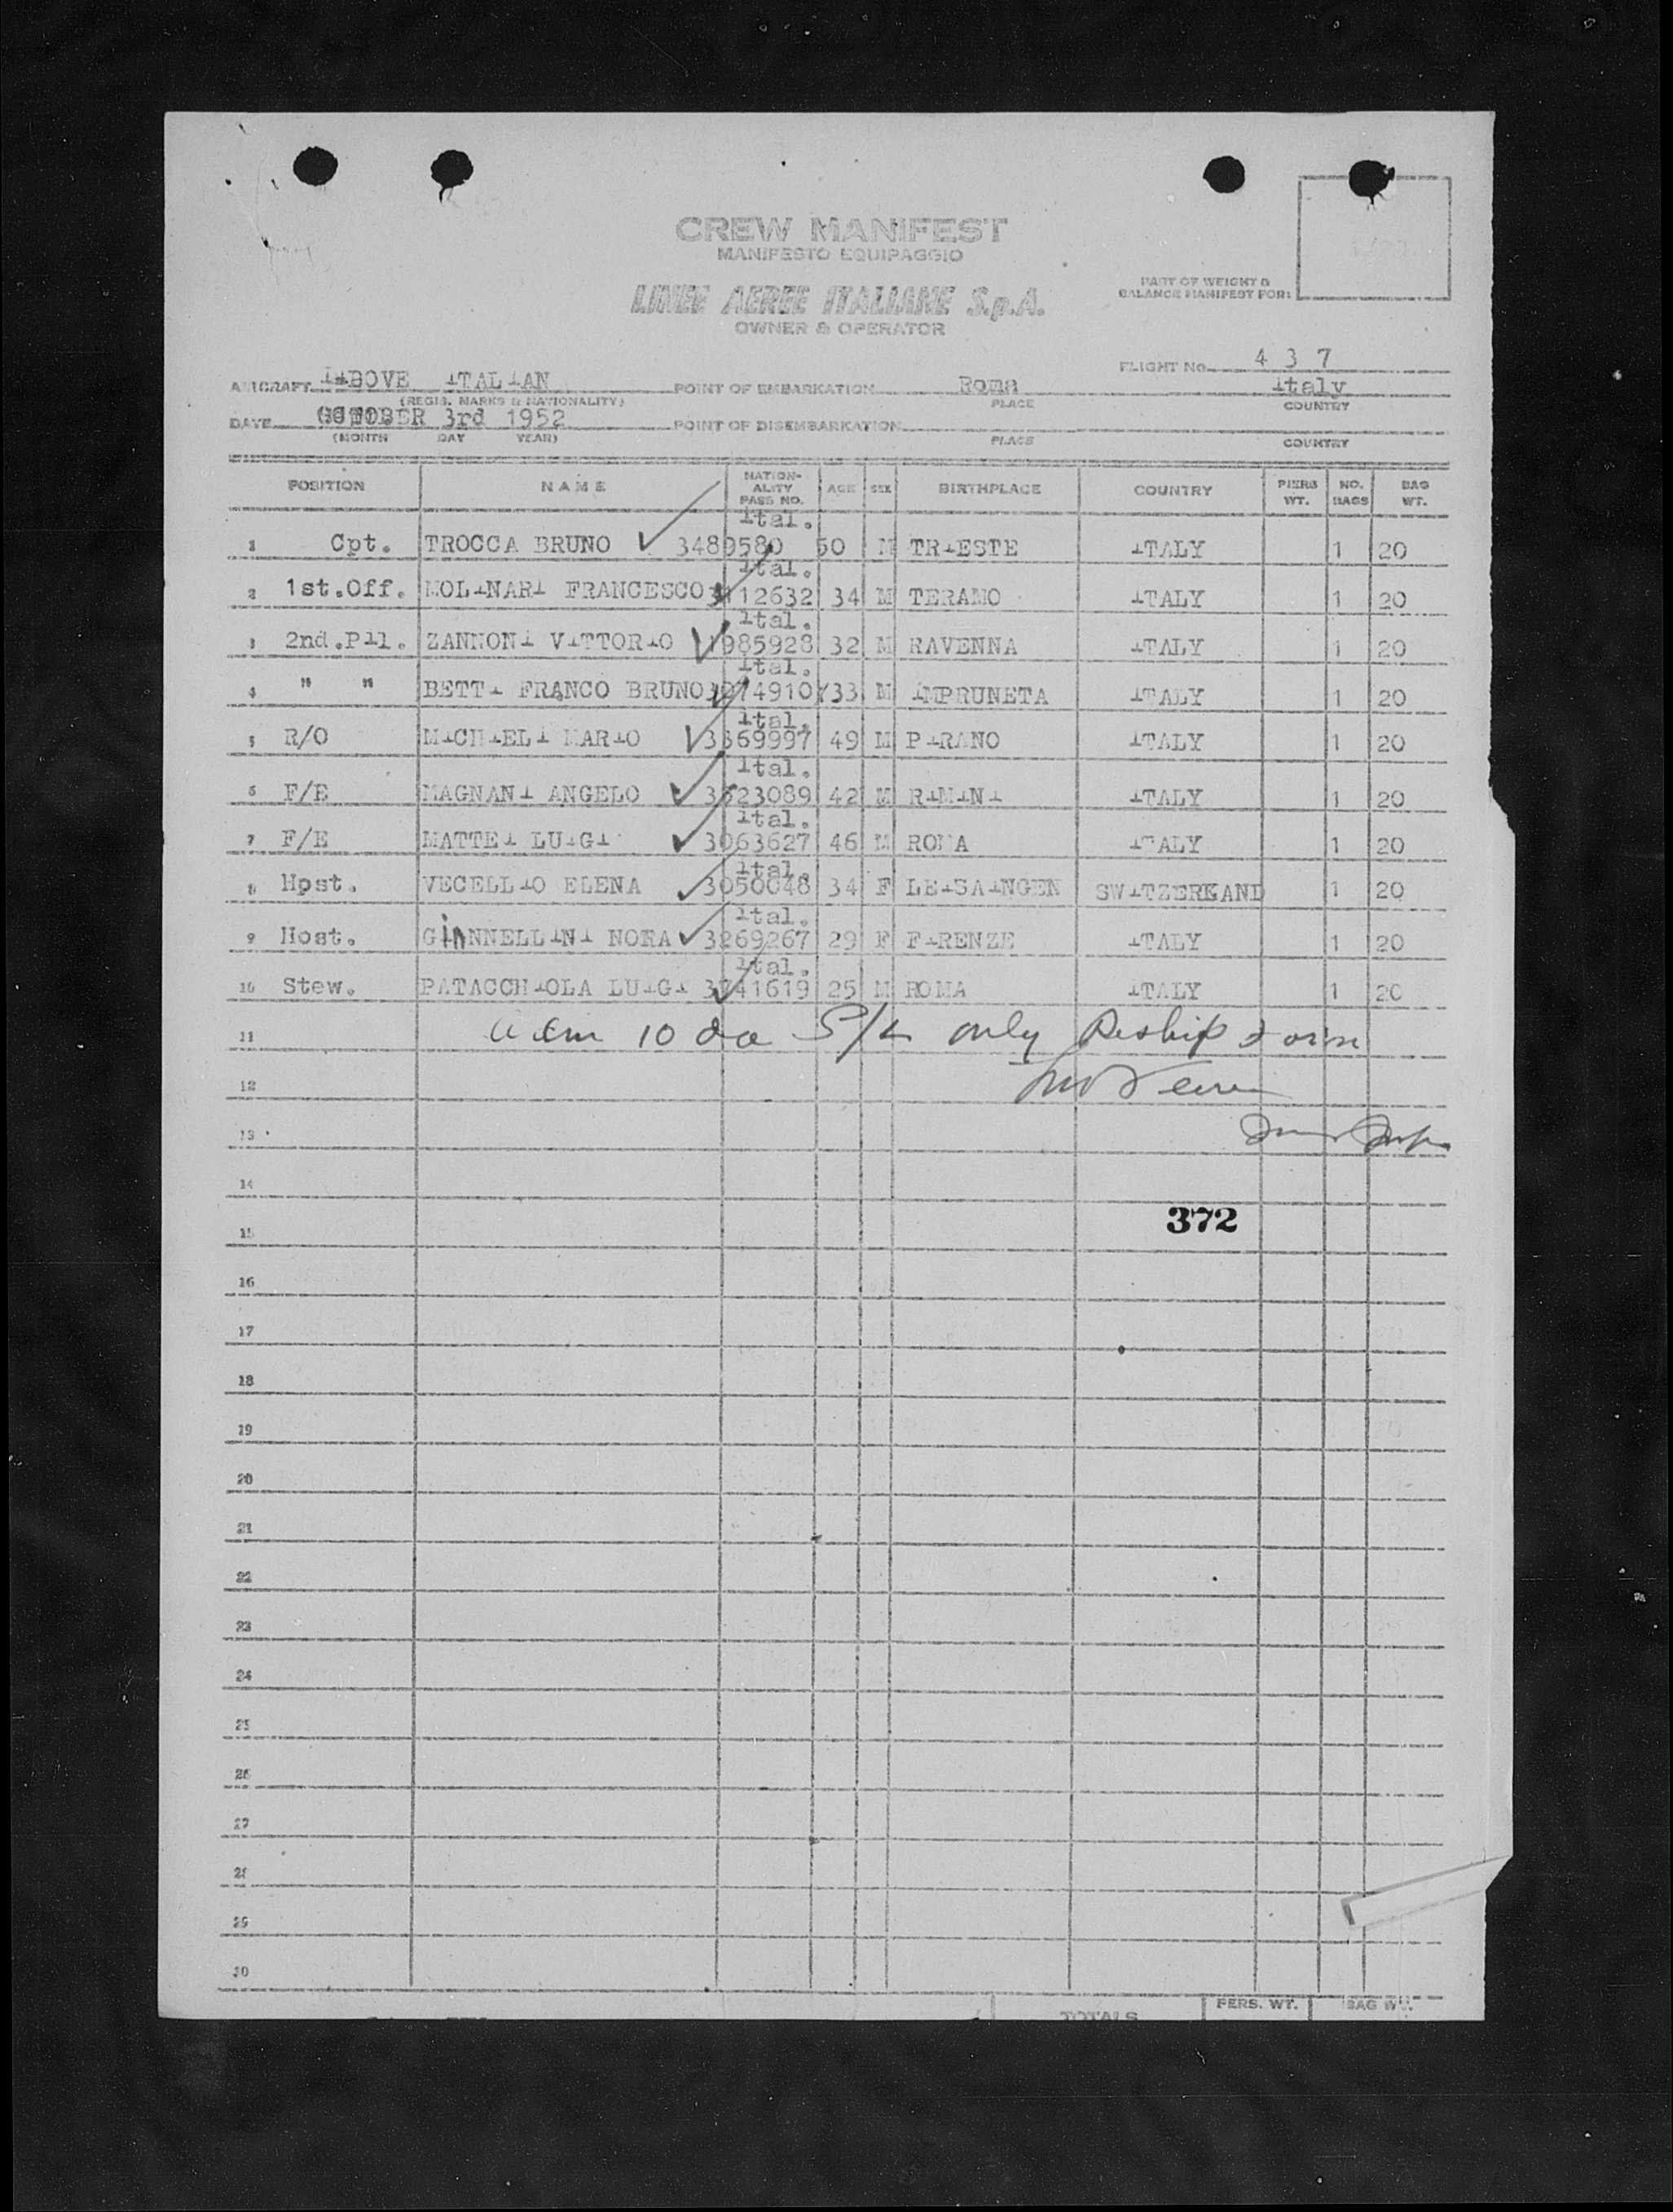 CREW MANIFEST
MANIFESTO EQUIPAGGIO
PART OF WEIGHT &
BALANCE MANIFEST FOR:
LINEE AEREE ITALIANE S.p.A.
OWNER & OPERATOR
FLIGHT No. 4 3 7
AIRCRAFT ITALIAN POINT OF EMBARKATION Roma Italy
(REGIS. MARKS & NATIONALITY) PLACE COUNTRY
DATE OCTOBER 3rd 1952 POINT OF DISEMBARKATION
(MONTH DAY YEAR) PLACE COUNTRY
POSITION NAME NATION-ALITY PASS NO. AGE SEX BIRTHPLACE COUNTRY PERS WT. NO. BAGS BAG WT.
Ital.
1 Cpt. TROCCA BRUNO 3480580 50 M TRIESTE ITALY 1 20
Ital.
2 1st.Off. MOLINARI FRANCESCO 3112632 34 M TERAMO ITALY 1 20
Ital.
3 2nd.Pil. ZANNONI VITTORIO 1985928 32 M RAVENNA ITALY 1 20
Ital.
4 " " BETTI FRANCO BRUNO 33 M IMPRUNETA ITALY 1 20
Ital.
5 R/O MICHIELI MARIO 3369997 49 M PIRANO ITALY 1 20
Ital.
6 F/E MAGNANI ANGELO 42 M RIMINI ITALY 1 20
Ital.
7 F/E MATTEI LUIGI 3063627 46 M ROMA ITALY 1 20
Ital.
8 Hpst. VECELLIO ELENA 3050048 34 F LEISAINGEN SWITZERKAND 1 20
Ital.
9 Host. GIANNELLINI NORA 3269267 29 F FIRENZE ITALY 1 20
Ital.
10 Stew. PATACCHIOLA LUIGI 25 M ROMA ITALY 1 20
11 10 da S/L only Reship
12
13
14
15 372
16
17
18
19
20
21
22
23
24
25
26
27
28
29
30
TOTALS PERS. WT. BAG WT.